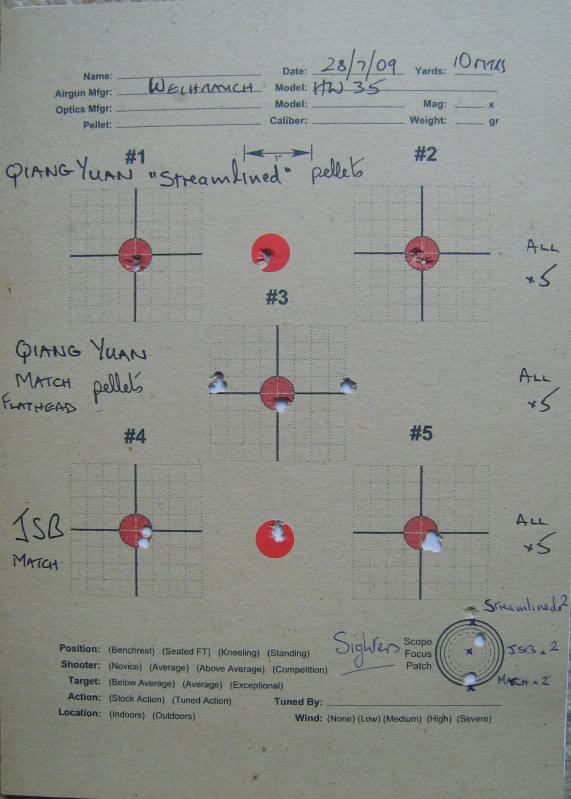 Name: Date: 28/7/09 Yards: 10 mtrs
Airgun Mfgr: WEIHRAUCH Model: HW 35
Optics Mfgr: Model: Mag: x
Pellet: Caliber: Weight: gr
#1 1" #2
QIANG YUAN "Streamlined" pellets
ALL
x5
#3
QIANG YUAN
MATCH pellets
FLATHEAD
ALL
x5
#4 #5
JSB
MATCH
ALL
x5
Streamlined x2
Sighters
Scope
Focus
Patch
JSB x 2
MATCH x 2
Position: (Benchrest) (Seated FT) (Kneeling) (Standing)
Shooter: (Novice) (Average) (Above Average) (Competition)
Target: (Below Average) (Average) (Exceptional)
Action: (Stock Action) (Tuned Action) Tuned By:
Location: (Indoors) (Outdoors) Wind: (None) (Low) (Medium) (High) (Severe)